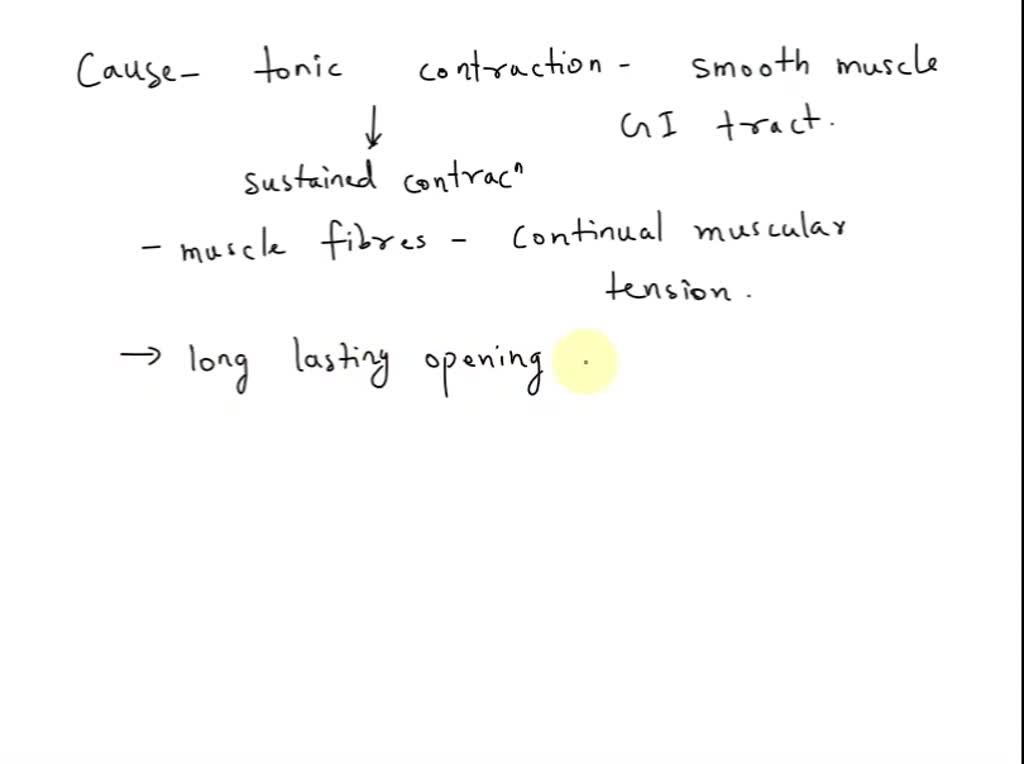 Cause - tonic contraction - smooth muscle
GI tract.
↓
sustained contracⁿ
- muscle fibres - continual muscular
tension.
→ long lasting opening